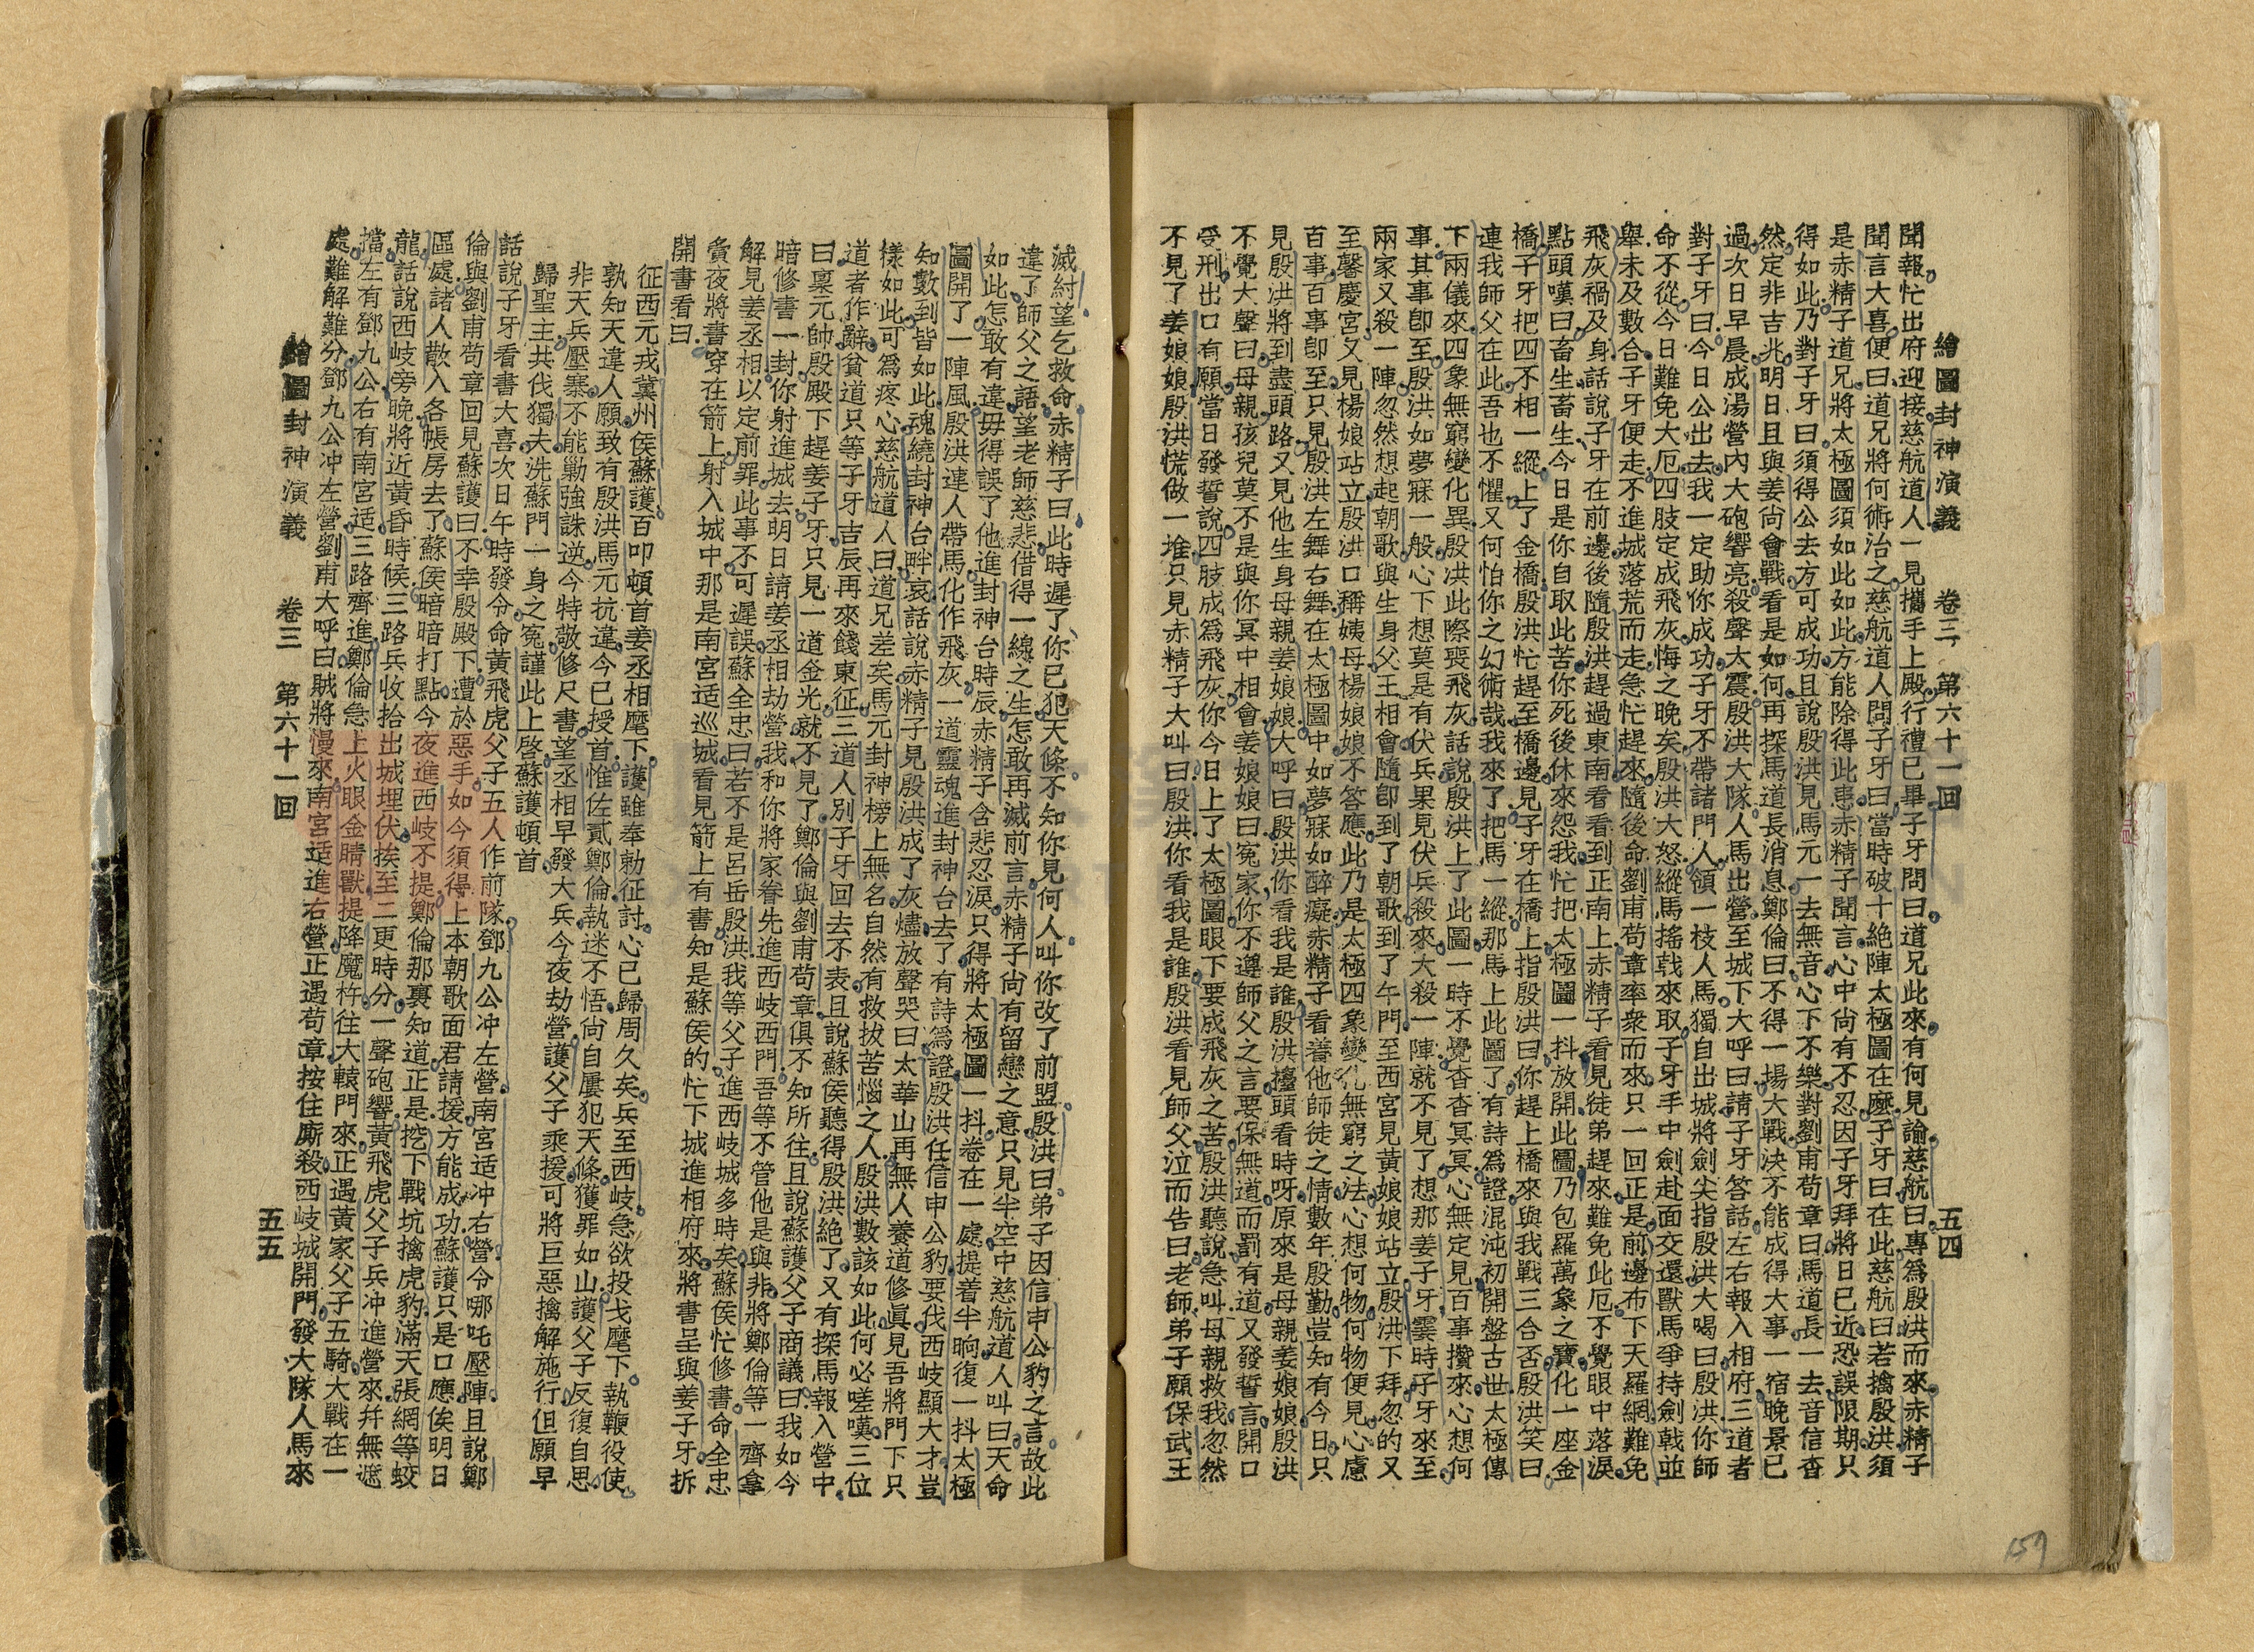 繪圖封神演義　卷三　第六十一回　五四
聞報忙出府迎接慈航道人一見攜手上殿行禮已畢子牙問曰道兄此來有何見諭慈航曰專爲殷洪而來赤精子
聞言大喜便曰道兄將何術治之慈航道人問子牙曰當時破十絶陣太極圖在麽子牙曰在此慈航曰若擒殷洪須
是赤精子道兄將太極圖須如此如此方能除得此患赤精子聞言心中尙有不忍因子牙拜將日已近恐誤限期只
得如此乃對子牙曰須得公去方可成功且說殷洪見馬元一去無音心下不樂對劉甫苟章曰馬道長一去音信杳
然定非吉兆明日且與姜尙會戰看是如何再探馬道長消息鄭倫曰不得一場大戰決不能成得大事一宿晚景已
過次日早晨成湯營內大砲響亮殺聲大震殷洪大隊人馬出營至城下大呼曰請子牙答話左右報入相府三道者
對子牙曰今日公出去我一定助你成功子牙不帶諸門人領一枝人馬獨自出城將劍尖指殷洪大喝曰殷洪你師
命不從今日難免大厄四肢定成飛灰悔之晚矣殷洪大怒縱馬搖戟來取子牙手中劍赴面交還獸馬爭持劍戟並
舉未及數合子牙便走不進城落荒而走急忙趕來隨後命劉甫苟章率衆而來只一回正是前邊布下天羅網難免
飛灰禍及身話說子牙在前邊後隨殷洪趕過東南看看到正南上赤精子看見徒弟趕來難免此厄不覺眼中落淚
點頭嘆曰畜生畜生今日是你自取此苦你死後休來怨我忙把太極圖一抖放開此圖乃包羅萬象之寶化一座金
橋子牙把四不相一縱上了金橋殷洪忙趕至橋邊見子牙在橋上指殷洪曰你趕上橋來與我戰三合否殷洪笑曰
連我師父在此吾也不懼又何怕你之幻術哉我來了把馬一縱那馬上此圖了有詩爲證混沌初開盤古世太極傳
下兩儀來四象無窮變化異殷洪此際喪飛灰話說殷洪上了此圖一時不覺杳杳冥冥心無定見百事攢來心想何
事其事卽至殷洪如夢寐一般心下想莫是有伏兵果見伏兵殺來大殺一陣就不見了想那姜子牙霎時子牙來至
兩家又殺一陣忽然想起朝歌與生身父王相會隨卽到了朝歌到了午門至西宮見黃娘娘站立殷洪下拜忽的又
至馨慶宮又見楊娘站立殷洪口稱姨母楊娘娘不答應此乃是太極四象變化無窮之法心想何物何物便見心慮
百事百事卽至只見殷洪左舞右舞在太極圖中如夢寐如醉癡赤精子看着他師徒之情數年殷勤豈知有今日只
見殷洪將到盡頭路又見他生身母親姜娘娘大呼曰殷洪你看我是誰殷洪擡頭看時呀原來是母親姜娘娘殷洪
不覺大聲曰母親孩兒莫不是與你冥中相會姜娘娘曰冤家你不遵師父之言要保無道而罰有道又發誓言開口
受刑出口有願當日發誓說四肢成爲飛灰你今日上了太極圖眼下要成飛灰之苦殷洪聽說急叫母親救我忽然
不見了姜娘娘殷洪慌做一堆只見赤精子大叫曰殷洪你看我是誰殷洪看見師父泣而告曰老師弟子願保武王
滅紂望乞救命赤精子曰此時遲了你已犯天條不知你見何人叫你改了前盟殷洪曰弟子因信申公豹之言故此
違了師父之語望老師慈悲借得一線之生怎敢再滅前言赤精子尙有留戀之意只見半空中慈航道人叫曰天命
如此怎敢有違毋得誤了他進封神台時辰赤精子含悲忍淚只得將太極圖一抖卷在一處提着半晌復一抖太極
圖開了一陣風殷洪連人帶馬化作飛灰一道靈魂進封神台去了有詩爲證殷洪任信申公豹要伐西岐顯大才豈
知數到皆如此魂繞封神台畔哀話說赤精子見殷洪成了灰燼放聲哭曰太華山再無人養道修眞見吾將門下只
樣如此可爲疼心慈航道人曰道兄差矣馬元封神榜上無名自然有救拔苦惱之人殷洪數該如此何必嗟嘆三位
道者作辭貧道只等子牙吉辰再來餞東征三道人別子牙回去不表且說蘇侯聽得殷洪絶了又有探馬報入營中
曰稟元帥殷殿下趕姜子牙只見一道金光就不見了鄭倫與劉甫苟章俱不知所往且說蘇護父子商議曰我如今
暗修書一封你射進城去明日請姜丞相劫營我和你將家眷先進西岐西門吾等不管他是與非將鄭倫等一齊拿
解見姜丞相以定前罪此事不可遲誤蘇全忠曰若不是呂岳殷洪我等父子進西岐城多時矣蘇侯忙修書命全忠
夤夜將書穿在箭上射入城中那是南宮适巡城看見箭上有書知是蘇侯的忙下城進相府來將書呈與姜子牙拆
開書看曰
征西元戎冀州侯蘇護百叩頓首姜丞相麾下護雖奉勅征討心已歸周久矣兵至西岐急欲投戈麾下執鞭役使
孰知天違人願致有殷洪馬元抗違今已授首惟佐貳鄭倫執迷不悟尙自屢犯天條獲罪如山護父子反復自思
非天兵壓寨不能勦強誅逆今特敬修尺書望丞相早發大兵今夜劫營護父子乘援可將巨惡擒解施行但願早
歸聖主共伐獨夫洗蘇門一身之冤謹此上啓蘇護頓首
話說子牙看書大喜次日午時發令命黃飛虎父子五人作前隊鄧九公冲左營南宮适冲右營令哪吒壓陣且說鄭
倫與劉甫苟章回見蘇護曰不幸殷殿下遭於惡手如今須得上本朝歌面君請援方能成功蘇護只是口應俟明日
區處諸人散入各帳房去了蘇侯暗暗打點今夜進西岐不提鄭倫那裏知道正是挖下戰坑擒虎豹滿天張網等蛟
龍話說西岐旁晚將近黃昏時候三路兵收拾出城埋伏挨至二更時分一聲砲響黃飛虎父子兵冲進營來幷無遮
擋左有鄧九公右有南宮适三路齊進鄭倫急上火眼金睛獸提降魔杵往大轅門來正遇黃家父子五騎大戰在一
處難解難分鄧九公冲左營劉甫大呼曰賊將慢來南宮适進右營正遇苟章按住廝殺西岐城開門發大隊人馬來
繪圖封神演義　卷三　第六十一回　五五
159